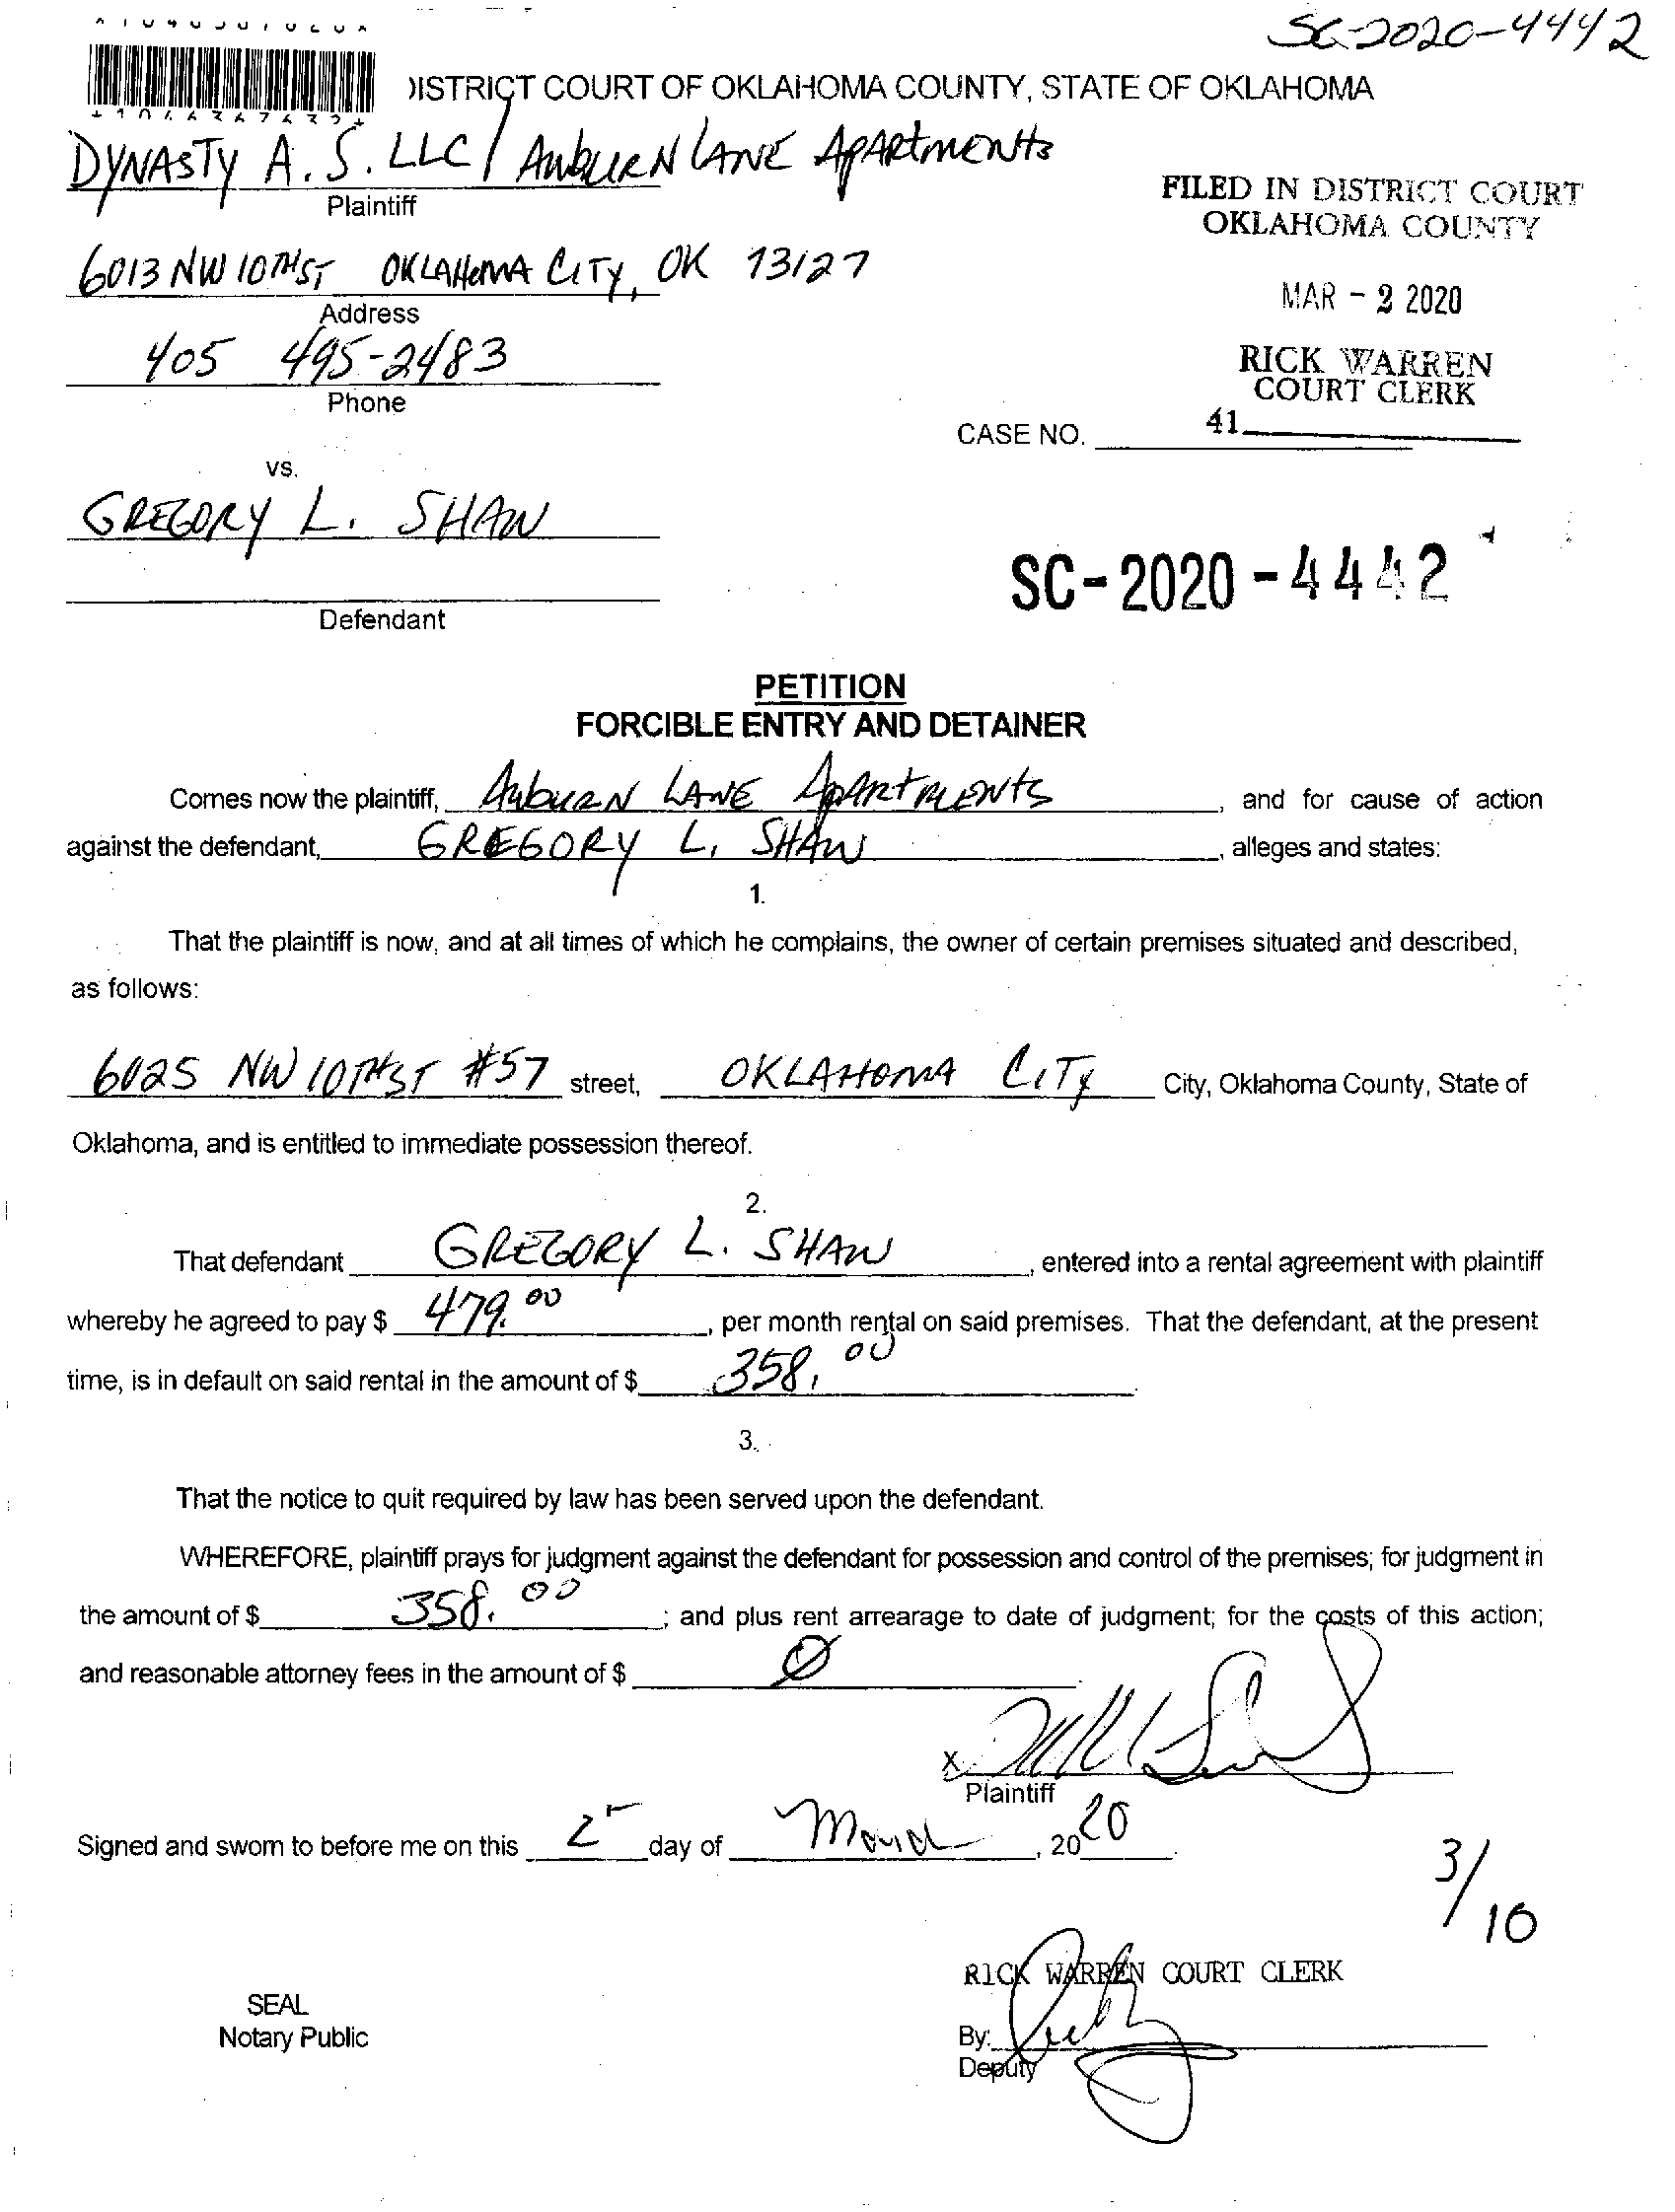 SC-2020-4442
DISTRICT COURT OF OKLAHOMA COUNTY, STATE OF OKLAHOMA
DYNASTY A.S. LLC / AUBURN LANE APARTMENTS
Plaintiff
FILED IN DISTRICT COURT
OKLAHOMA COUNTY
6013 NW 10TH ST OKLAHOMA CITY, OK 73127
Address
MAR - 2 2020
405 495-2483
Phone
RICK WARREN
COURT CLERK
CASE NO. 41
vs.
GREGORY L. SHAW
SC-2020-4442
Defendant
PETITION
FORCIBLE ENTRY AND DETAINER
Comes now the plaintiff, AUBURN LANE APARTMENTS, and for cause of action
against the defendant, GREGORY L. SHAW, alleges and states:
1.
That the plaintiff is now, and at all times of which he complains, the owner of certain premises situated and described,
as follows:
6025 NW 10TH ST #57 street, OKLAHOMA CITY City, Oklahoma County, State of
Oklahoma, and is entitled to immediate possession thereof.
2.
That defendant GREGORY L. SHAW, entered into a rental agreement with plaintiff
whereby he agreed to pay $ 479.00, per month rental on said premises. That the defendant, at the present
time, is in default on said rental in the amount of $ 358.00.
3.
That the notice to quit required by law has been served upon the defendant.
WHEREFORE, plaintiff prays for judgment against the defendant for possession and control of the premises; for judgment in
the amount of $ 358.00; and plus rent arrearage to date of judgment; for the costs of this action;
and reasonable attorney fees in the amount of $ Ø.
X
Plaintiff
Signed and sworn to before me on this 2 day of March, 2020.
3/10
RICK WARREN COURT CLERK
SEAL
Notary Public
By:
Deputy